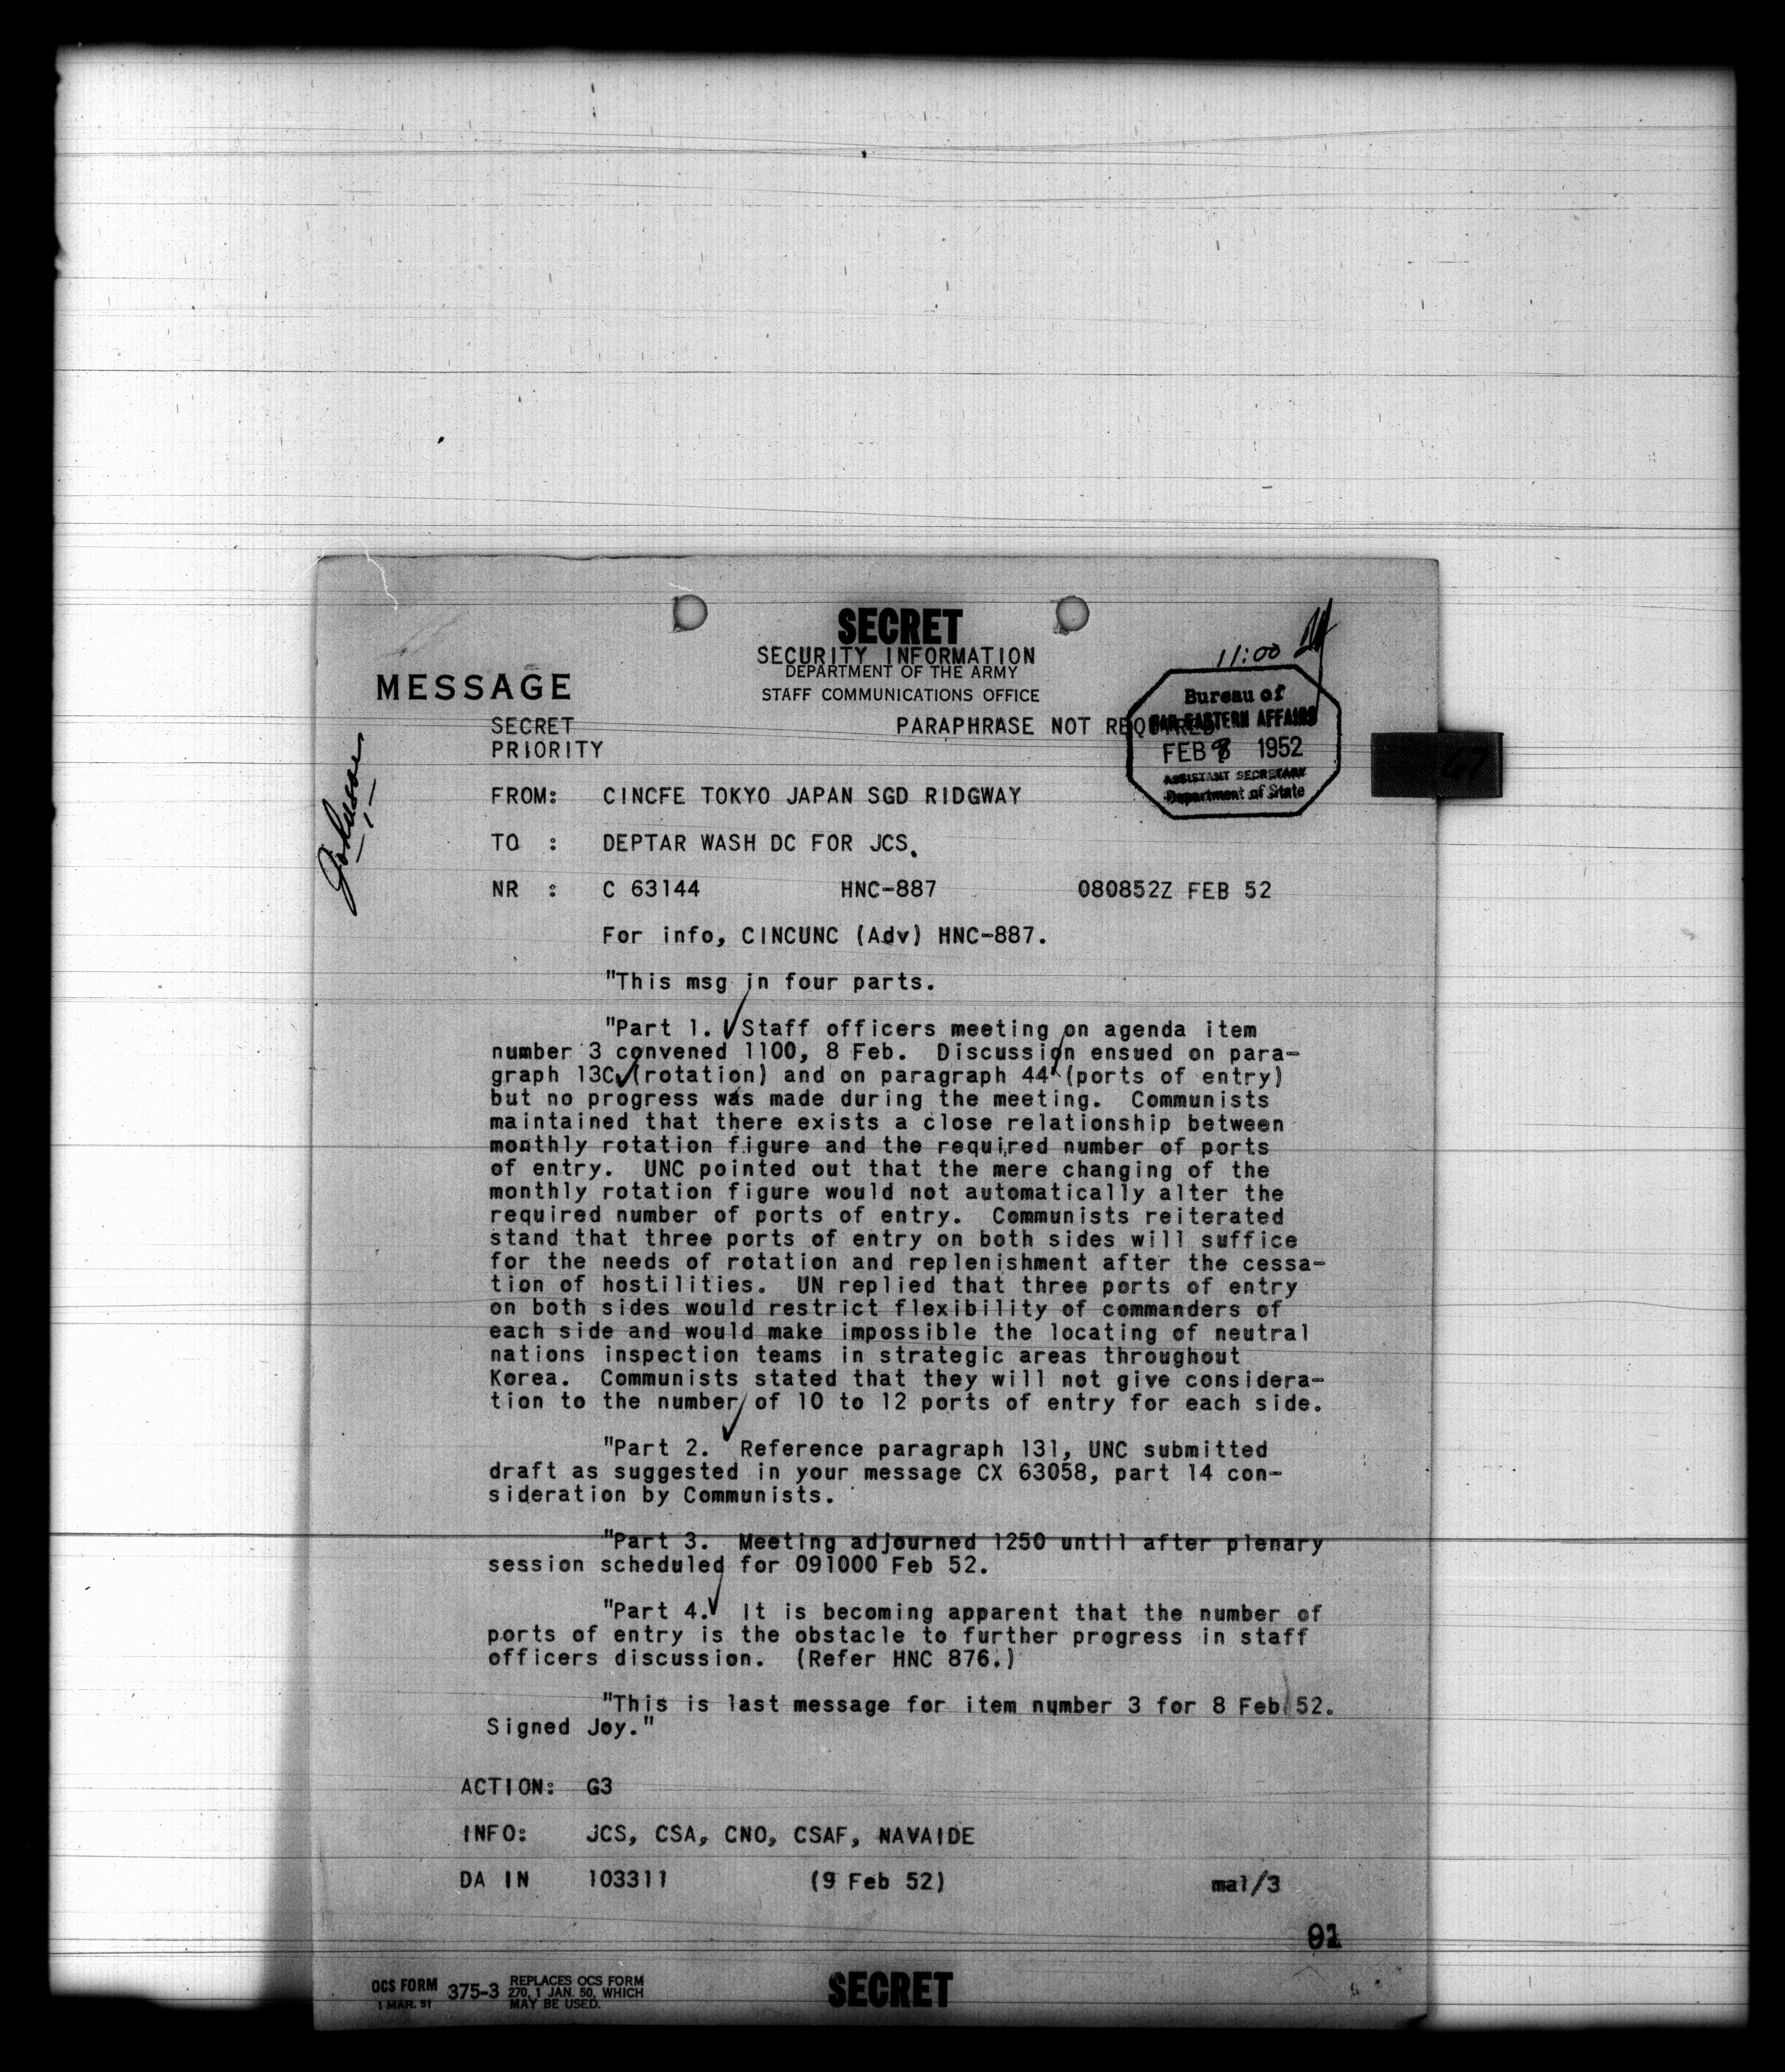 SECRET
SECURITY INFORMATION
DEPARTMENT OF THE ARMY
STAFF COMMUNICATIONS OFFICE
MESSAGE
11:00
SECRET
PARAPHRASE NOT REQUIRED
PRIORITY
Bureau of
FAR EASTERN AFFAIRS
FEB 8 1952
ASSISTANT SECRETARY
Department of State
Johnson
FROM: CINCFE TOKYO JAPAN SGD RIDGWAY
TO : DEPTAR WASH DC FOR JCS.
NR : C 63144 HNC-887 080852Z FEB 52
For info, CINCUNC (Adv) HNC-887.
"This msg in four parts.
"Part 1. Staff officers meeting on agenda item
number 3 convened 1100, 8 Feb. Discussion ensued on para-
graph 13C (rotation) and on paragraph 44 (ports of entry)
but no progress was made during the meeting. Communists
maintained that there exists a close relationship between
monthly rotation figure and the required number of ports
of entry. UNC pointed out that the mere changing of the
monthly rotation figure would not automatically alter the
required number of ports of entry. Communists reiterated
stand that three ports of entry on both sides will suffice
for the needs of rotation and replenishment after the cessa-
tion of hostilities. UN replied that three ports of entry
on both sides would restrict flexibility of commanders of
each side and would make impossible the locating of neutral
nations inspection teams in strategic areas throughout
Korea. Communists stated that they will not give considera-
tion to the number of 10 to 12 ports of entry for each side.
"Part 2. Reference paragraph 131, UNC submitted
draft as suggested in your message CX 63058, part 14 con-
sideration by Communists.
"Part 3. Meeting adjourned 1250 until after plenary
session scheduled for 091000 Feb 52.
"Part 4. It is becoming apparent that the number of
ports of entry is the obstacle to further progress in staff
officers discussion. (Refer HNC 876.)
"This is last message for item number 3 for 8 Feb 52.
Signed Joy."
ACTION: G3
INFO: JCS, CSA, CNO, CSAF, NAVAIDE
DA IN 103311 (9 Feb 52) mal/3
91
OCS FORM 375-3 REPLACES OCS FORM
1 MAR. 51 270, 1 JAN. 50, WHICH
MAY BE USED.
SECRET